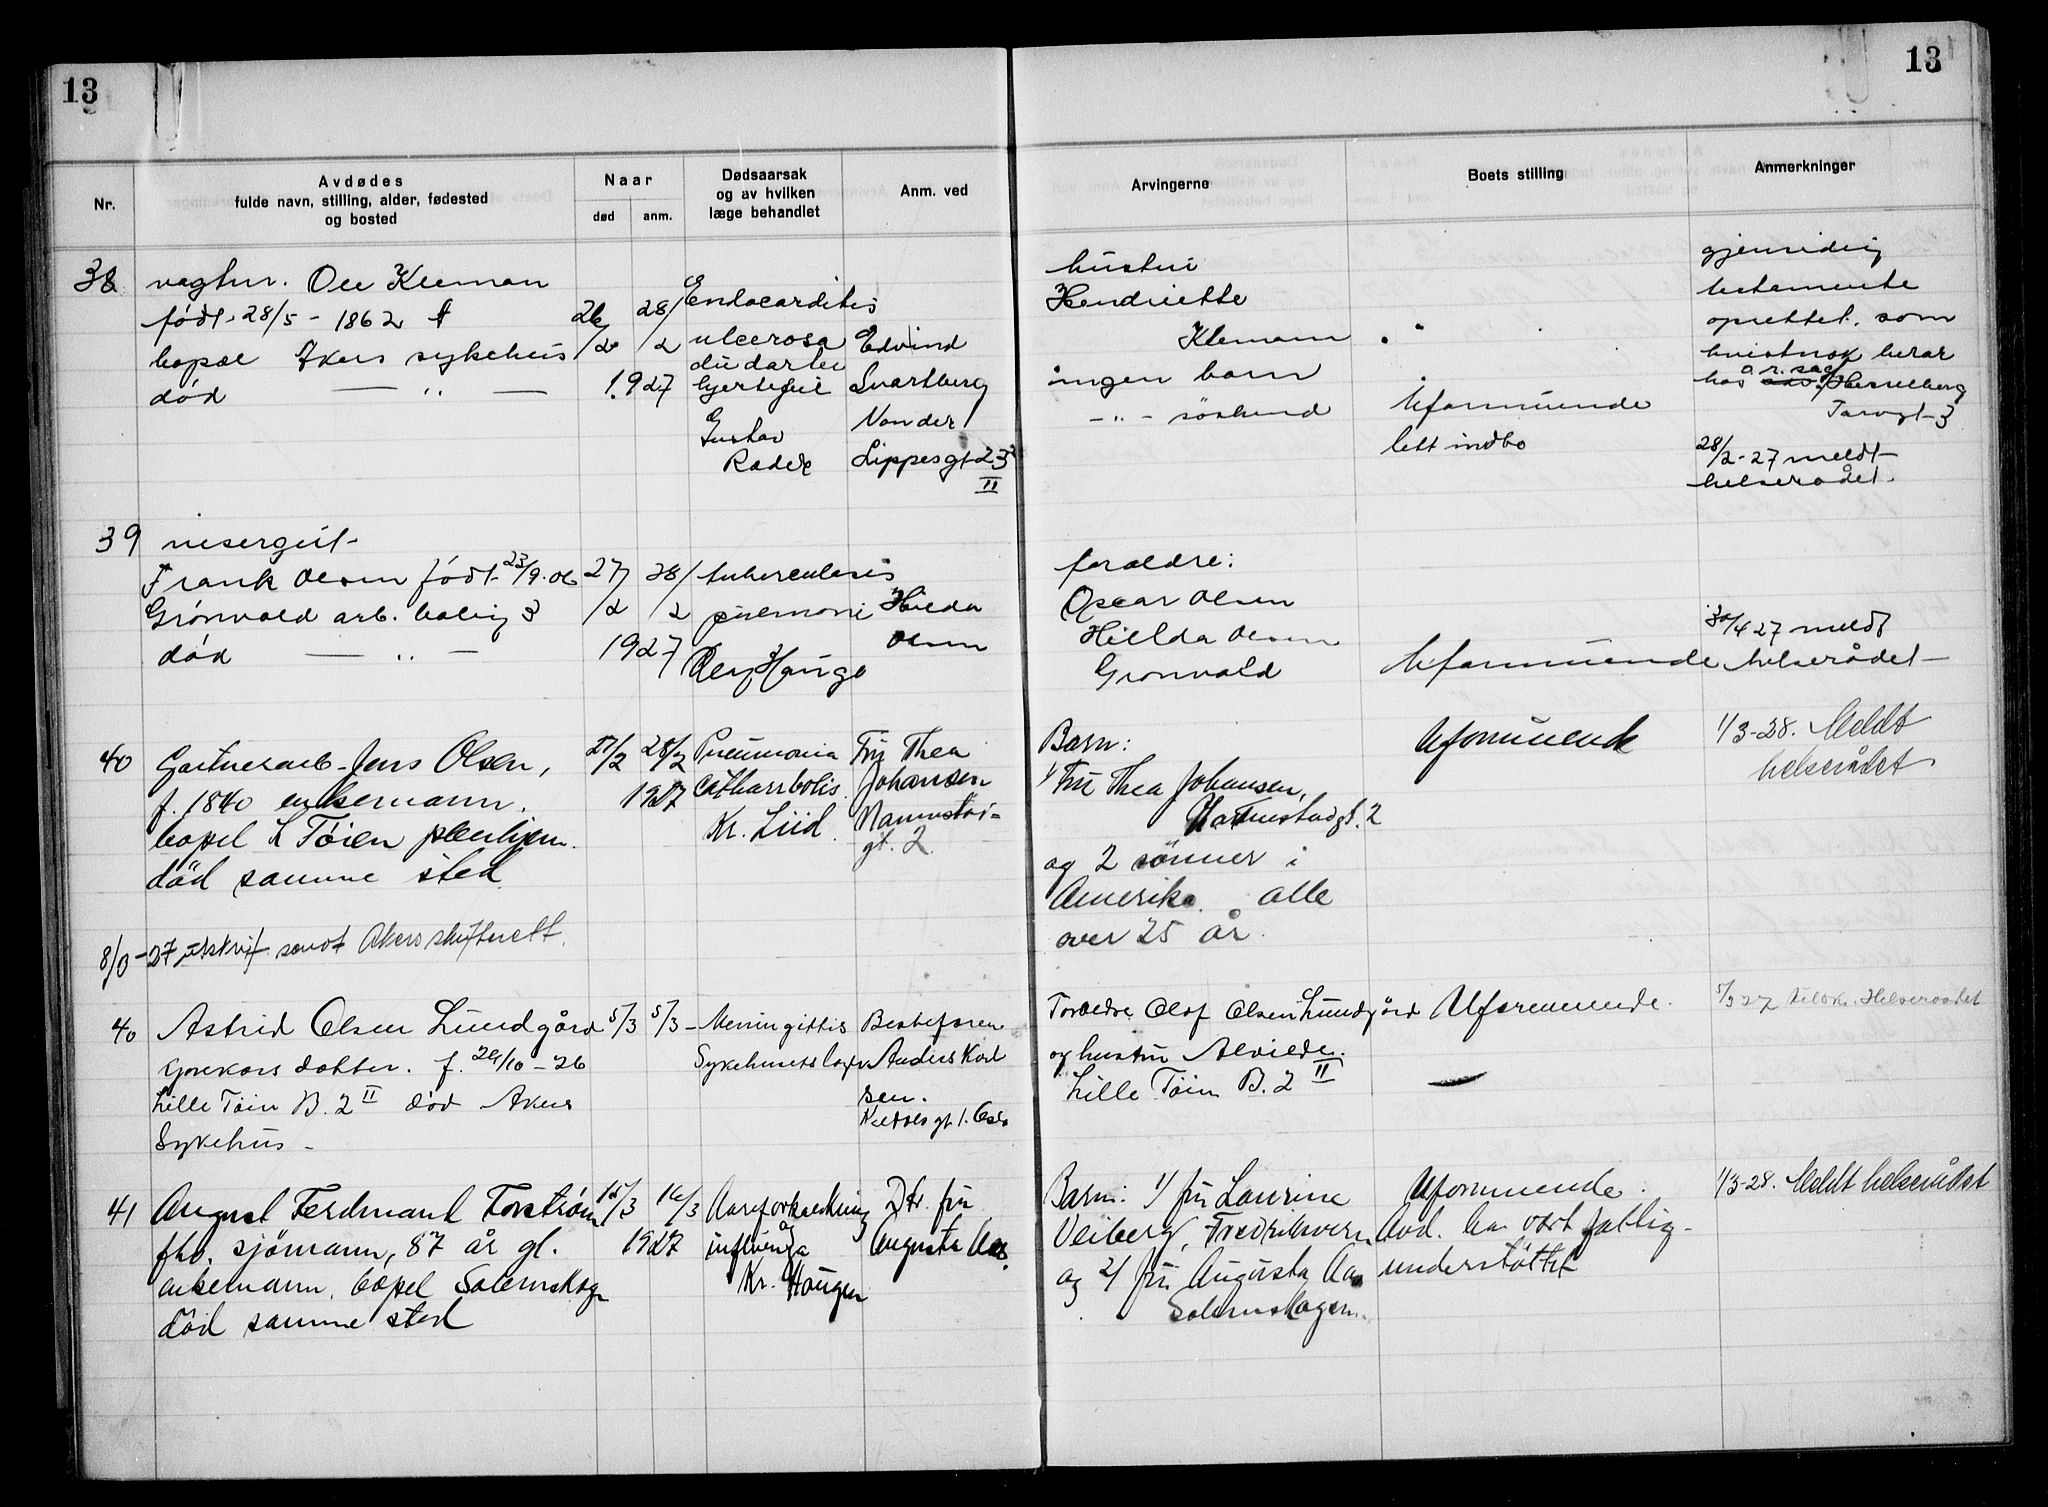 13
13
Nr.
Avdødes
fulde navn, stilling, alder, fødested
og bosted
Naar
død
anm.
Dødsaarsak
og av hvilken
læge behandlet
Anm. ved
Arvingerne
Boets stilling
Anmerkninger
38
født 28/5 - 1862
bopæl Akers sykehus
død — " —
26/2
28/2
1927
Endocarditis
ulcerosa
Gustav
Edvind
Svartberg
Von der
Lippesgt 23
II
hustru
Henriette
Klemann
ingen barn
- " - søskend
Uformuende
lett indbo
gjensidig
testamente
oprettet, som
hos o.r.sagf. Hesselberg
Torvgt 3
28/2-27 meldt
helserådet.
39 visergut
Frank Olsen født 23/9.06
Grönvold arb. bolig 3
død — " —
27/2
28/2
1927
tuberculosis
pulmoni
Hauge
Hilda
Olsen
foraeldre:
Oscar Olsen
Hilda Olsen
Grönvold
Uformuende
30/4 27 meldt
helserådet
40 Gartnerarb. Jens Olsen,
f. 1840 enkemann.
bopel L Töien pleiehjem.
död samme sted
27/2
28/2
1927
Pneumonia
Kr. Lid.
Fru Thea
Johansen
gt. 2.
Barn:
1/ Fru Thea Johansen,
og 2 sönner i
Amerika. alle
over 25 år.
Uformuende
1/3-28. Meldt
helserådet
-27 utskrift sendt Akers skifterett.
40 Astrid Olsen Lundgård
datter. f. 29/10-26
Lille Töien B. 2 II död Akers
Sykehus -
5/3
5/3 -
Meningittis
Sykehusets læge
Bestefaren
Anders Karl
sen.
Foraeldre Olof Olsen Lundgård
og hustru Alvilde.
Lille Töien B. 2 II
Uformuende.
—
5/3 27 tilsk. Helseraadet
41 August Ferdinand Forström
fhv. sjömann, 87 år gl.
enkemann, bopel Solemskogen
död samme sted
15/3
16/3
1927
Aareforkalkning
og
influenza
Kr. Haugen
Dtr. fru
Augusta Aas.
Barn: 1/ fru Laurine
Veiberg, Fredriksvern
og 2/ fru Augusta Aas
Solemskogen.
Uformuende.
Avd. har vært fattig-
understöttet
1/3-28. Meldt helserådet